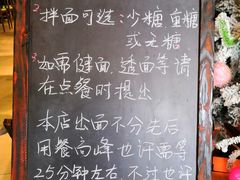 拌面可选：少糖、重糖
或无糖
如需健面，透面等请
在点餐时提出
本店出面不分先后
用餐高峰也许需等
25分钟左右 不过也许